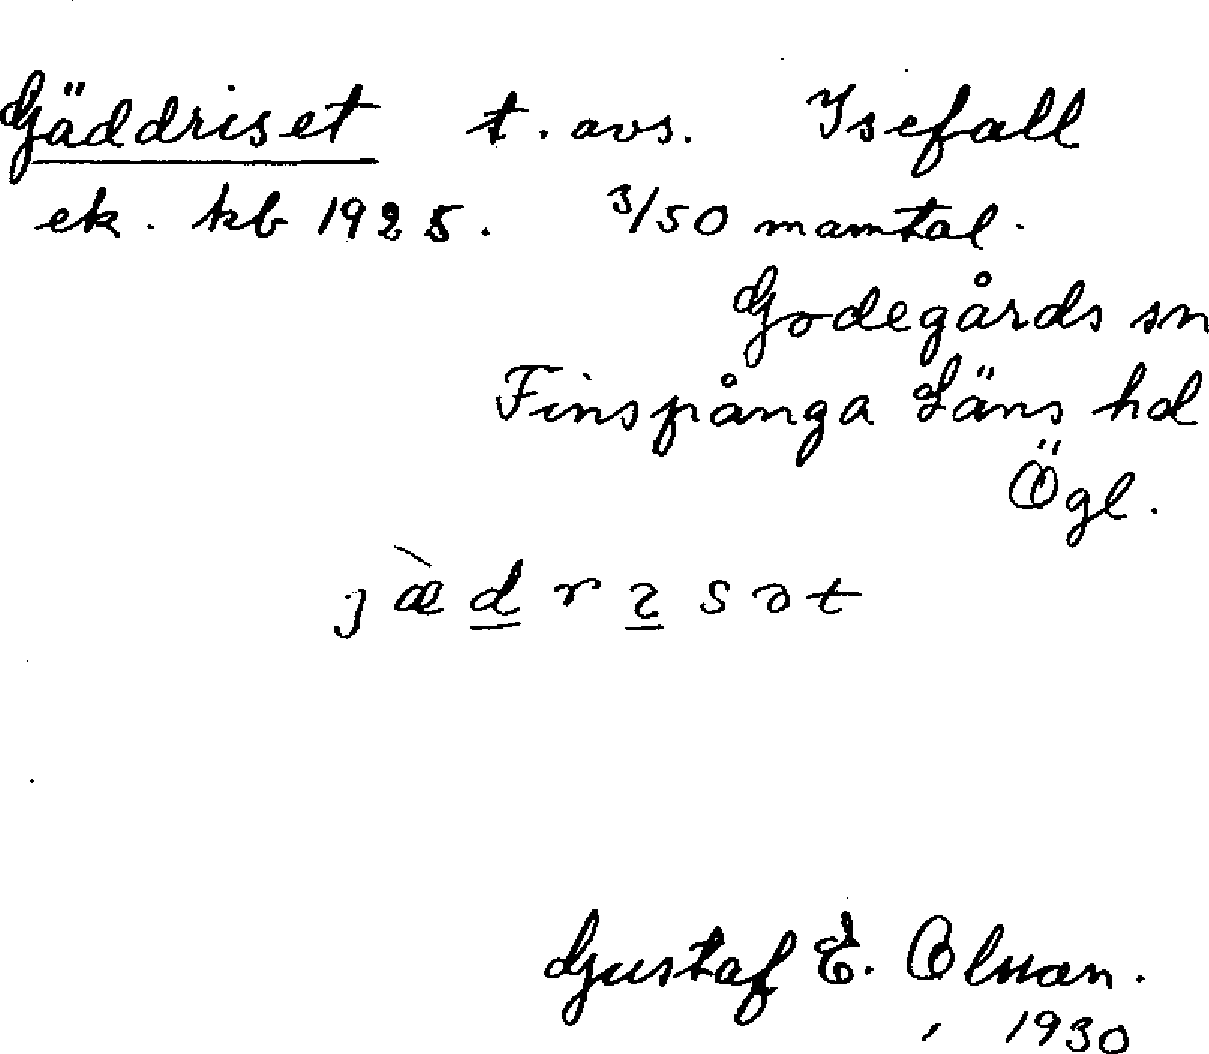 Gäddriset t. avs. Isefall
ek. kb 1925. 3/50 mamtal.
Godegårds sn
Finspånga Läns hd
Ögl.
jæ̀d̲rɩ̲sət
Gustaf E.
1930